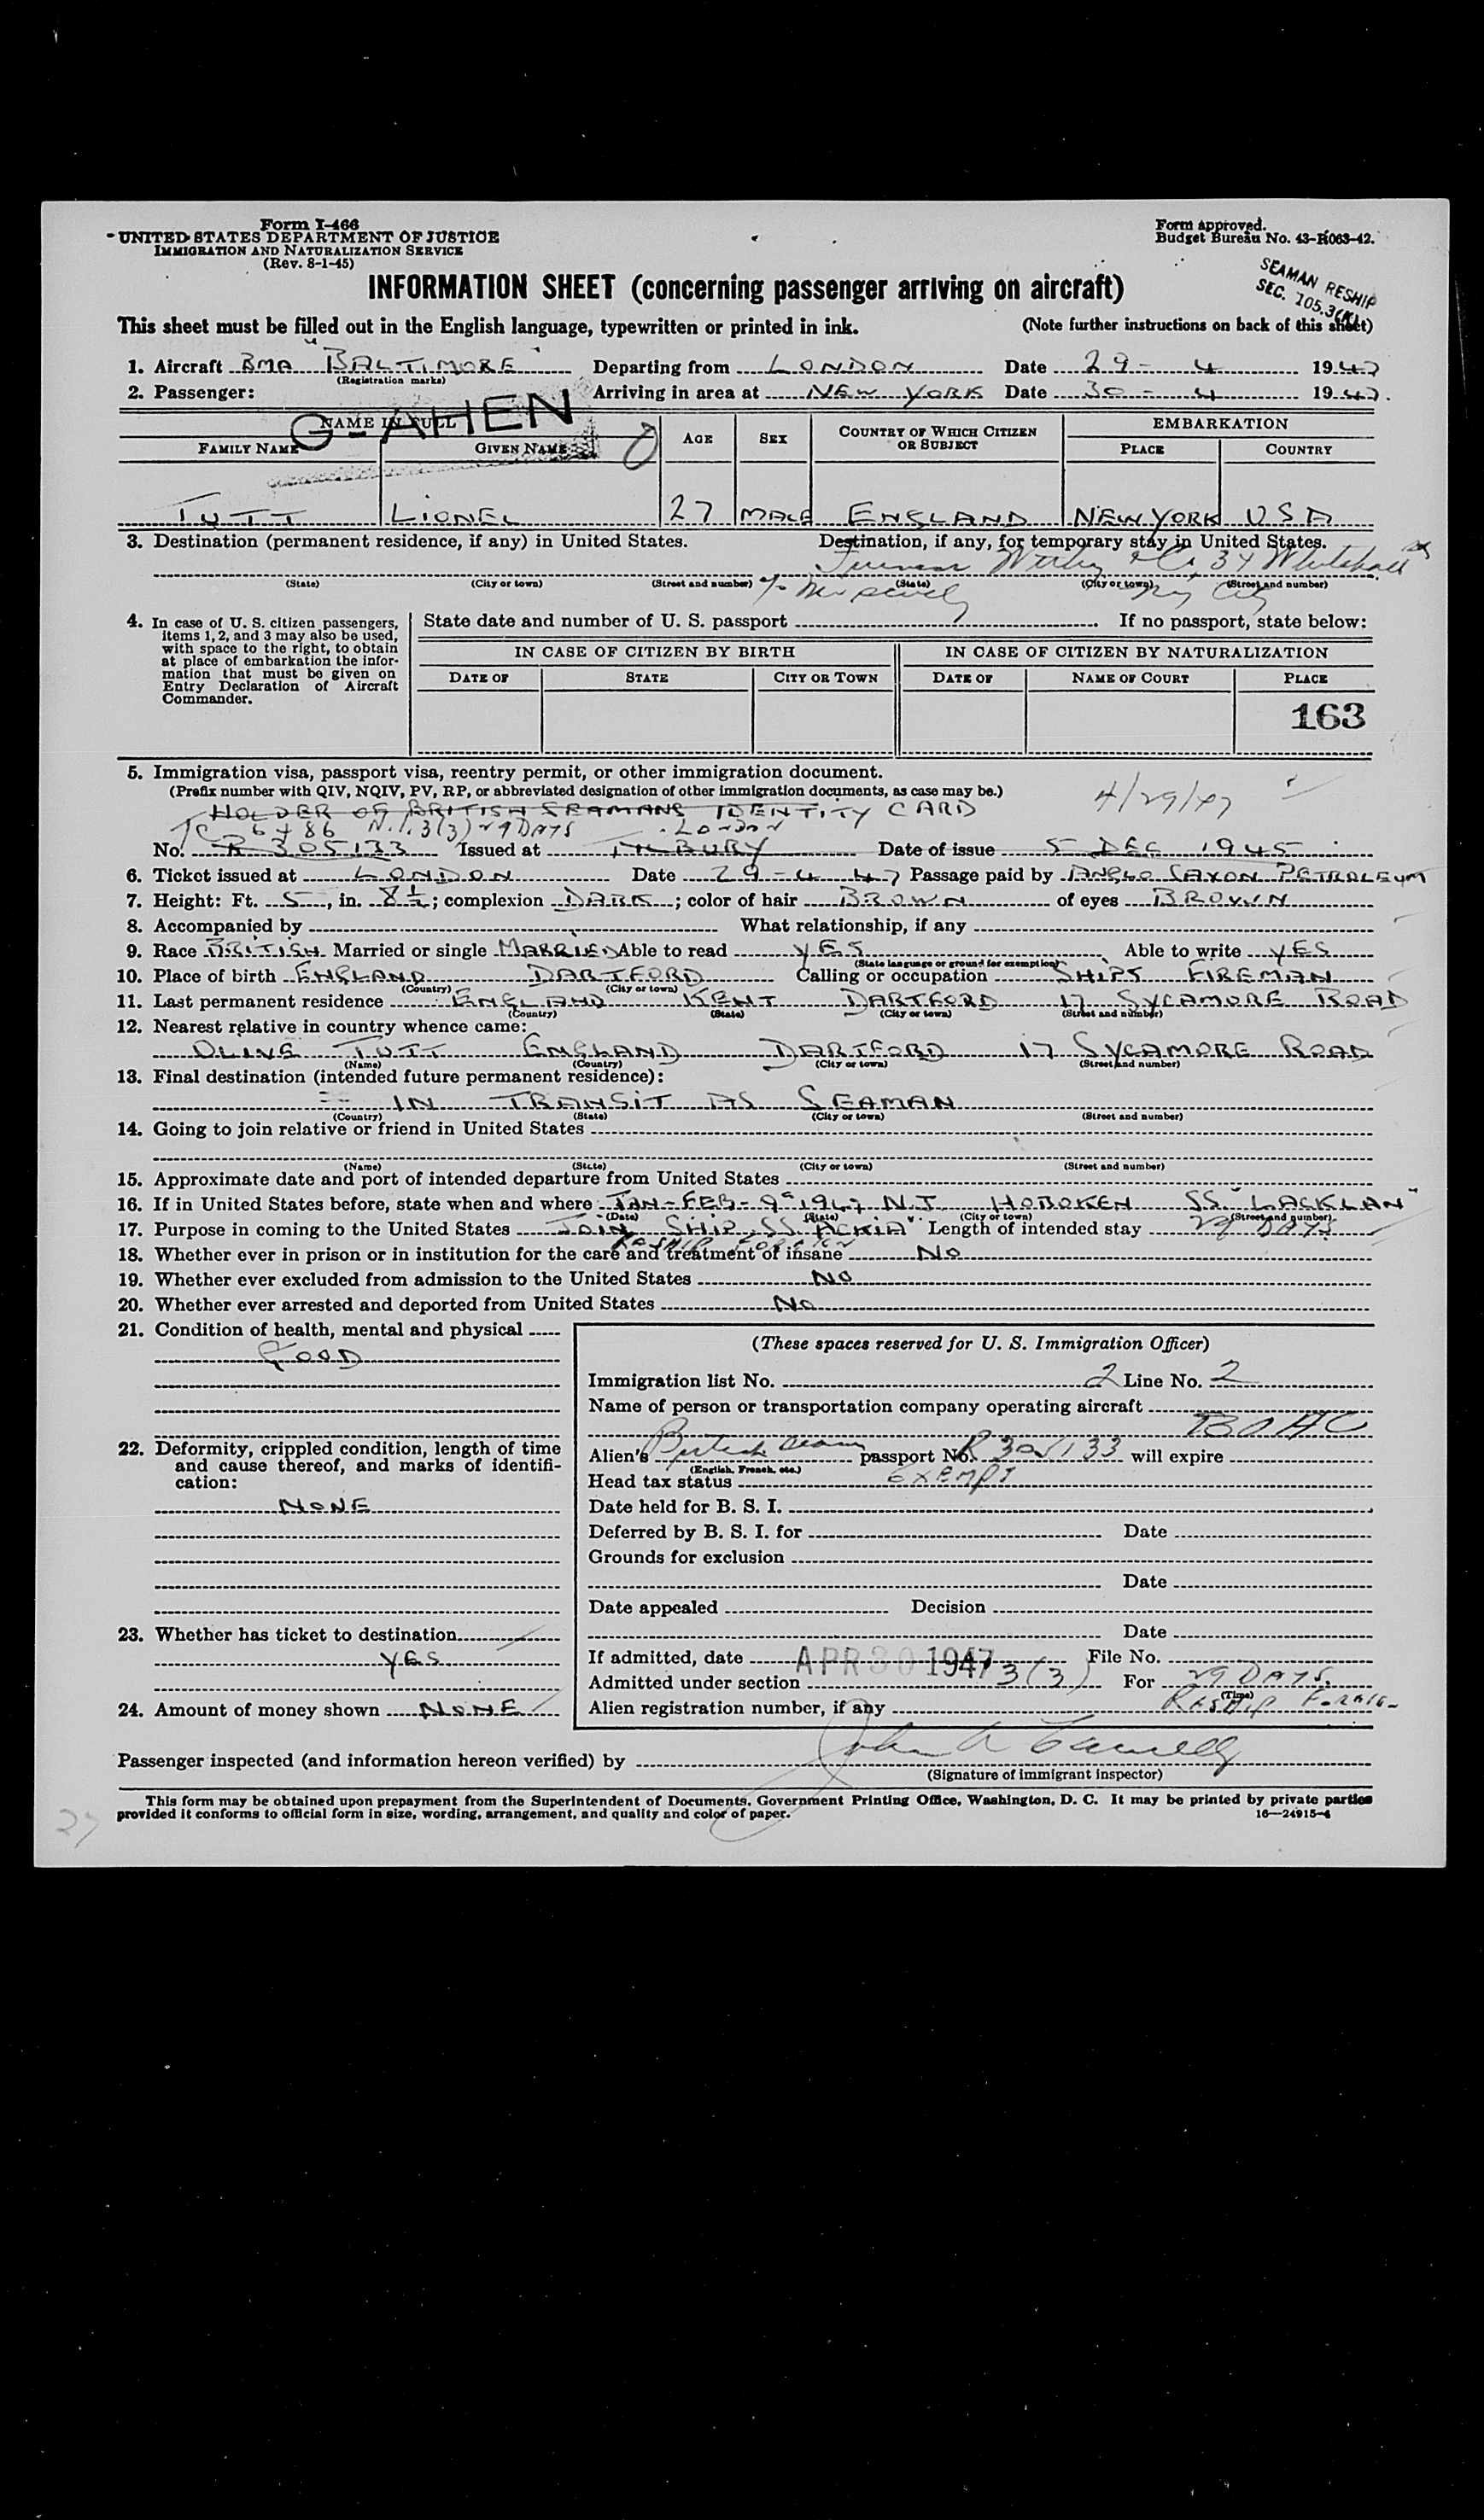 Form I-466
UNITED STATES DEPARTMENT OF JUSTICE
IMMIGRATION AND NATURALIZATION SERVICE
(Rev. 8-1-45)
Form approved.
Budget Bureau No. 43-R063-42.
SEAMAN RESHIP
SEC. 105.3(K)
INFORMATION SHEET (concerning passenger arriving on aircraft)
This sheet must be filled out in the English language, typewritten or printed in ink. (Note further instructions on back of this sheet)
1. Aircraft BMA "BALTIMORE" Departing from LONDON Date 29 - 4 1947
(Registration marks)
2. Passenger: Arriving in area at NEW YORK Date 30 - 4 1947.
G-AHEN
NAME IN FULL AGE SEX COUNTRY OF WHICH CITIZEN OR SUBJECT EMBARKATION
FAMILY NAME GIVEN NAME PLACE COUNTRY
TUTT LIONEL 27 MALE ENGLAND NEW YORK USA
3. Destination (permanent residence, if any) in United States. Destination, if any, for temporary stay in United States.
34 Whitehall
(State) (City or town) (Street and number) (State) (City or town) (Street and number)
c/o Ny City
4. In case of U. S. citizen passengers, items 1, 2, and 3 may also be used, with space to the right, to obtain at place of embarkation the information that must be given on Entry Declaration of Aircraft Commander.
State date and number of U. S. passport If no passport, state below:
IN CASE OF CITIZEN BY BIRTH IN CASE OF CITIZEN BY NATURALIZATION
DATE OF STATE CITY OR TOWN DATE OF NAME OF COURT PLACE
163
5. Immigration visa, passport visa, reentry permit, or other immigration document.
(Prefix number with QIV, NQIV, PV, RP, or abbreviated designation of other immigration documents, as case may be.) 4/29/47
HOLDER OF BRITISH SEAMANS IDENTITY CARD
3(3) 29 DAYS LONDON
No. R 305133 Issued at TILBURY Date of issue 5 DEC 1945
6. Ticket issued at LONDON Date 29 - 4 47 Passage paid by ANGLO SAXON PETROLEUM
7. Height: Ft. 5, in. 8½; complexion DARK; color of hair BROWN of eyes BROWN
8. Accompanied by What relationship, if any
9. Race BRITISH Married or single MARRIED Able to read YES Able to write YES
(State language or ground for exemption)
10. Place of birth ENGLAND DARTFORD Calling or occupation SHIPS FIREMAN
(Country) (City or town)
11. Last permanent residence ENGLAND KENT DARTFORD 17 SYCAMORE ROAD
(Country) (State) (City or town) (Street and number)
12. Nearest relative in country whence came:
OLIVE TUTT ENGLAND DARTFORD 17 SYCAMORE ROAD
(Name) (Country) (City or town) (Street and number)
13. Final destination (intended future permanent residence):
IN TRANSIT AS SEAMAN
(Country) (State) (City or town) (Street and number)
14. Going to join relative or friend in United States
(Name) (State) (City or town) (Street and number)
15. Approximate date and port of intended departure from United States
16. If in United States before, state when and where JAN-FEB-9th 1947 N.J HOBOKEN SS "LACKLAN"
(Date) (State) (City or town) (Street and number)
17. Purpose in coming to the United States JOIN SHIP SS "ACKIA" Length of intended stay 29 DAYS
RESHIP FOREIGN
18. Whether ever in prison or in institution for the care and treatment of insane NO
19. Whether ever excluded from admission to the United States NO
20. Whether ever arrested and deported from United States NO
21. Condition of health, mental and physical
GOOD
22. Deformity, crippled condition, length of time and cause thereof, and marks of identification:
NONE
23. Whether has ticket to destination
YES
24. Amount of money shown NONE
(These spaces reserved for U. S. Immigration Officer)
Immigration list No. 2 Line No. 2
Name of person or transportation company operating aircraft
BOAC
Alien's British Seam passport No. R 305133 will expire
(English, French, etc.)
Head tax status EXEMPT
Date held for B. S. I.
Deferred by B. S. I. for Date
Grounds for exclusion
Date
Date appealed Decision
Date
If admitted, date APR 30 1947 File No.
Admitted under section 3(3) For 29 DAYS
(Time)
Alien registration number, if any RESHIP FOREIGN
Passenger inspected (and information hereon verified) by
(Signature of immigrant inspector)
This form may be obtained upon prepayment from the Superintendent of Documents, Government Printing Office, Washington, D. C. It may be printed by private parties
provided it conforms to official form in size, wording, arrangement, and quality and color of paper. 16—24915-4
27